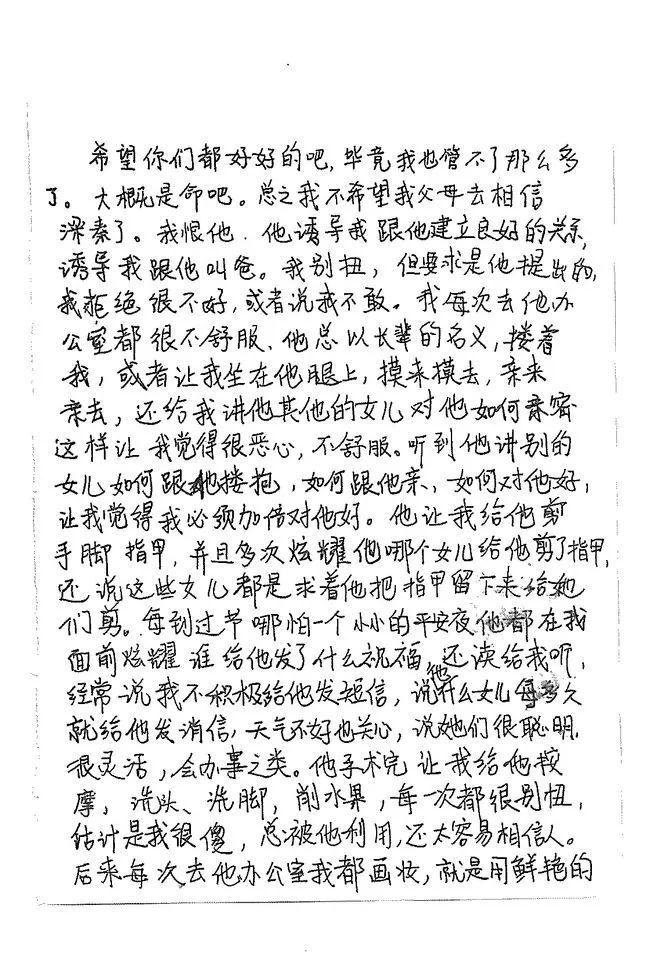 希望你们都好好的吧,毕竟我也管不了那么多
了。大概是命吧。总之我不希望我父母去相信
深奏了。我恨他.他诱导我跟他建立良好的关系,
诱导我跟他叫爸。我别扭,但要求是他提出的,
我拒绝很不好,或者说我不敢。我每次去他办
公室都很不舒服、他总以长辈的名义,搂着
我,或者让我坐在他腿上,摸来摸去,亲来
亲去,还给我讲他其他的女儿对他如何亲密
这样让我觉得很恶心,不舒服。听到他讲别的
女儿如何跟他搂抱,如何跟他亲、如何对他好,
让我觉得我必须加倍对他好。他让我给他剪
手脚指甲,并且多次炫耀他哪个女儿给他剪了指甲,
还说这些女儿都是求着他把指甲留下来给她
们剪。每到过节哪怕一个小小的平安夜他都在我
面前炫耀谁给他发了什么祝福他还读给我听,
经常说我不积极给他发短信,说什么女儿每多久
就给他发消信,天气不好也关心,说她们很聪明,
很灵活,会办事之类。他手术完让我给他按
摩,洗头、洗脚,削水果,每一次都很别扭,
估计是我很傻,总被他利用,还太容易相信人。
后来每次去他办公室我都画妆,就是用鲜艳的